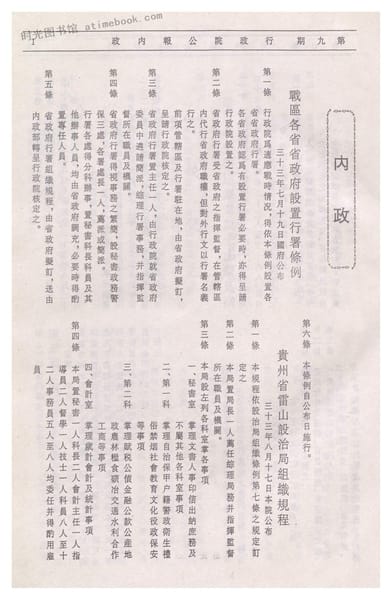 时光图书馆 atimebook.com
第九期 行政院公報 內政 1
內政
戰區各省省政府設置行署條例
三十三年七月十九日國府公布
第一條 行政院爲適應戰時情況，得依本條例設置各
省省政府行署。
各省政府認爲有設置行署必要時，亦得呈請
行政院設置之。
第二條 省政府行署受省政府之指揮監督，在管轄區
內代行省政府職權，但對外行文以行署名義
行之。
前項管轄區及行署駐在地，由省政府擬訂，
呈請行政院核定之。
第三條 省政府行署置主任一人，由行政院就省政府
委員中遴請簡派，綜理行署事務，并指揮監
督所在職員及機關。
第四條 省政府行署得視事務之繁簡，設秘書政務警
保三處，各署處長一人，薦派或簡派。
行署各處得分科辦事，置秘書科長科員及其
他辦事人員，均由省政府調充，必要時得酌
置專任人員。
第五條 省政府行署組織規程，由省政府擬訂，送由
內政部轉呈行政院核定之。
第六條 本條例自公布日施行。
貴州省雷山設治局組織規程
三十三年八月十七日本院公布
第一條 本規程依設治局組織條例第七條之規定訂
定之
第二條 本局置局長一人薦任綜理局務并指揮監督
所在職員及機關。
第三條 本局設左列各科室掌各事項
一、秘書室 掌理文書人事印信出納庶務及
不屬其他各科室事項
二、第一科 掌理自治保甲戶籍警政衛生禮
俗禁烟社會教育文化役政保安
等事項
三、第二科 掌理賦稅公債金融公款公產地
政農林糧食礦冶交通水利合作
工商等事項
四、會計室 掌理歲計會計及統計事項
第四條 本局置秘書一人科長二人會計主任一人指
導員二人督學一人技士一人科員八人至十
二人事務員五人至八人均委任并得酌用雇
員